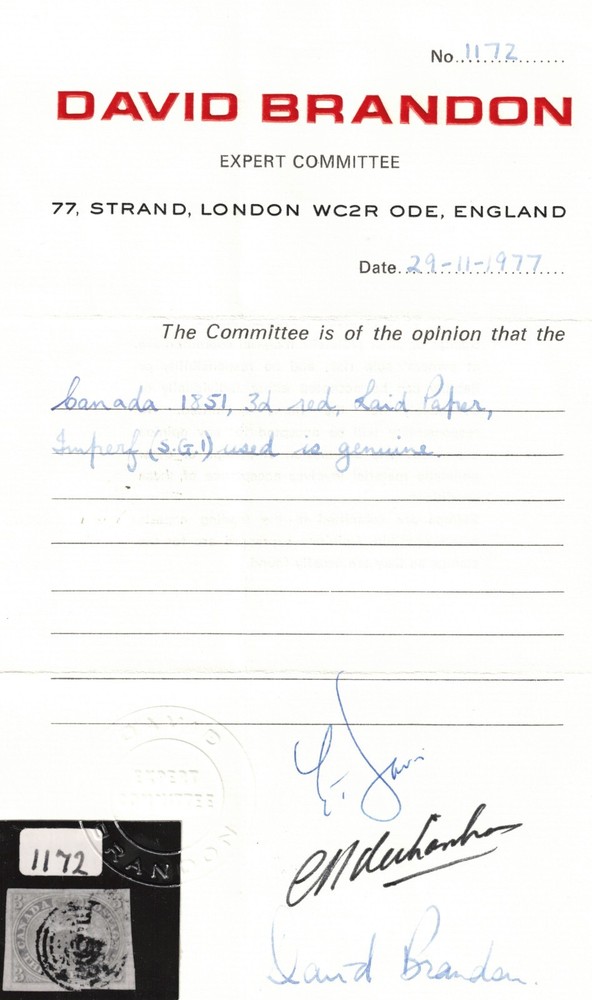 No. 1172
DAVID BRANDON
EXPERT COMMITTEE
77, STRAND, LONDON WC2R ODE, ENGLAND
Date. 29-11-1977
The Committee is of the opinion that the
Canada 1851, 3d red, Laid Paper,
Imperf (S.G.1) used is genuine.
DAVID
EXPERT
COMMITTEE
BRANDON
1172
CANADA
David Brandon.